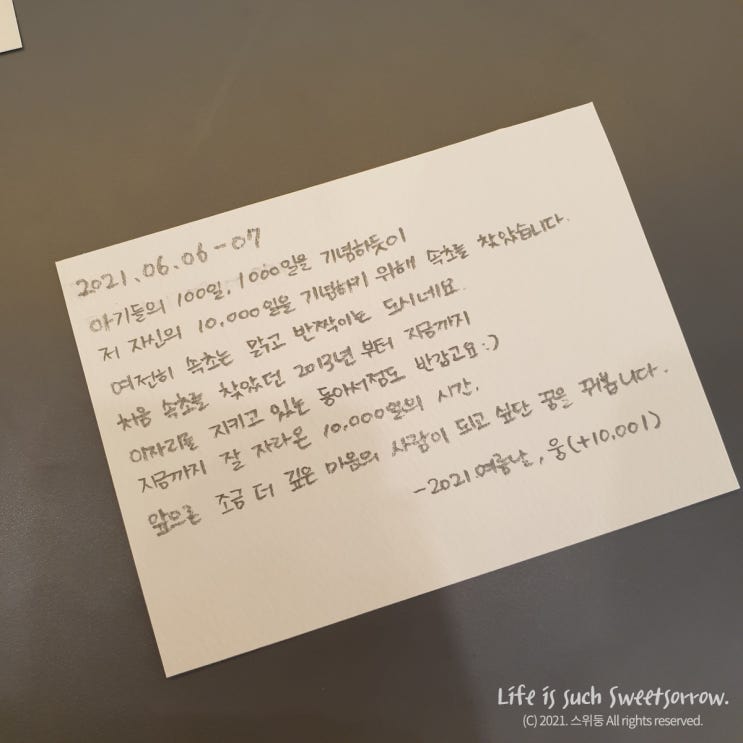 2021.06.06-07
아기들의 100일, 1000일을 기념하듯이
저 자신의 10,000일을 기념하기 위해 속초를 찾았습니다.
여전히 속초는 맑고 반짝이는 도시네요.
처음 속초를 찾았던 2013년 부터 지금까지
이자리를 지키고 있는 동아서점도 반갑고요:)
지금까지 잘 자라온 10,000일의 시간.
앞으론 조금 더 깊은 마음의 사람이 되고 싶단 꿈을 꿔봅니다.
-2021 여름날, 웅(+10,001)
Life is such Sweetsorrow.
(C) 2021. 스위둥 All rights reserved.